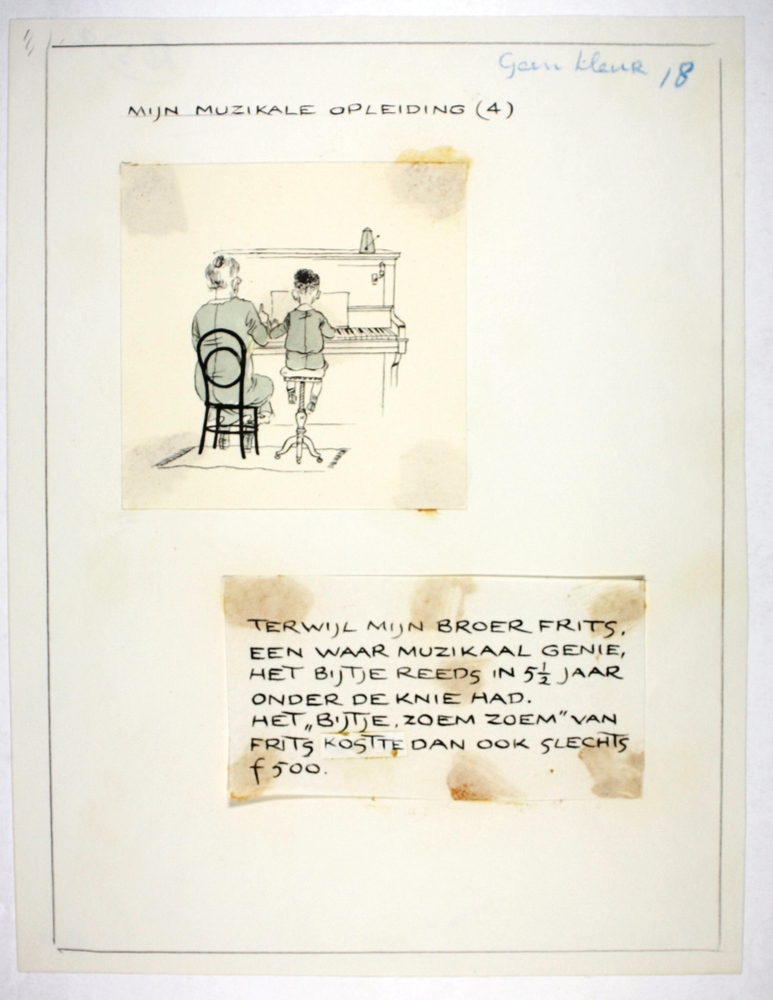 Geen kleur 18
MIJN MUZIKALE OPLEIDING (4)
TERWIJL MIJN BROER FRITS,
EEN WAAR MUZIKAAL GENIE,
HET BIJTJE REEDS IN 5½ JAAR
ONDER DE KNIE HAD.
HET „BIJTJE, ZOEM ZOEM" VAN
FRITS KOSTTE DAN OOK SLECHTS
f 500.